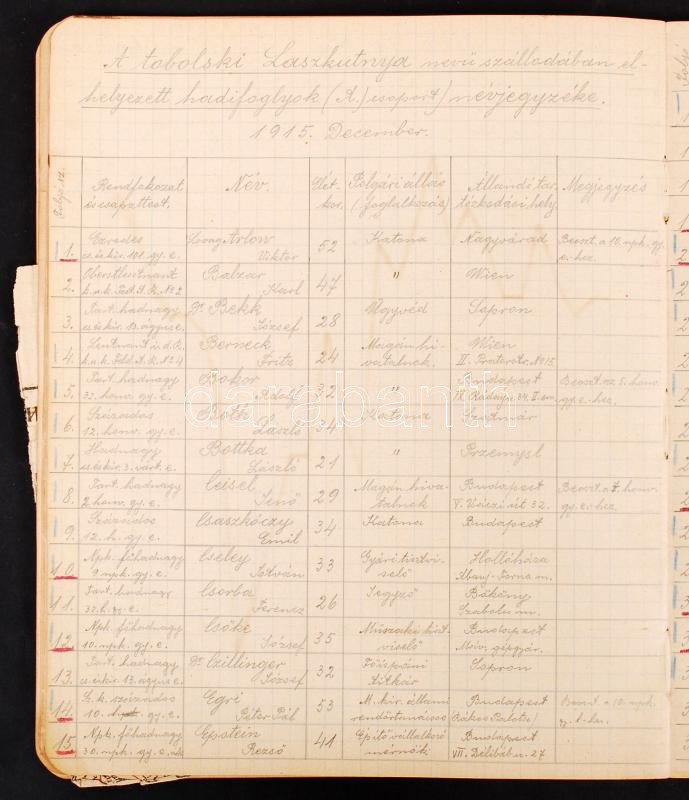 A tobolski Laszkutnya nevű szállodában el-
helyezett hadifoglyok (A.) csoport) névjegyzéke.
1915. December.
Rendfokozat és csapattest. Név. Élet-kor. Polgári állás (foglalkozás) Állandó tar-tózkodási hely. Megjegyzés
1. Ezredes Arlow Viktor 52 Katona Nagyvárad Beoszt. a 10. npk. gy. e.-hez.
cs. és kir. 101. gy. e.
2. Oberstleutnant Balzar Karl 47 " Wien
k.u.k. Fest. A. R. No 2
3. Tart. hadnagy Dr. Bekk József 28 Ügyvéd Sopron
4. Leutnant i. d. R. Berneck Fritz 24 Magánhi-vatalnok Wien
k.u.k. Feld. A. R. No 4 II. Praterstr. No 15
5. Tart. hadnagy Bokor Adolf 32 " Budapest Beoszt. az 5. honv. gy. e.-hez.
32. honv. gy. e. IX. Ráday u. 34. II. em.
6. Százados Both László 34 Katona Szatmár
12. honv. gy. e.
7. Hadnagy Bottka László 21 " Przemysl
cs. és kir. 3. várt. e.
8. Tart. hadnagy Ceisel Jenő 29 Magán hiva-talnok Budapest
2. honv. gy. e. V. Váczi út 32.
9. Százados Csaszkóczy Emil 34 Katona Budapest
12. h. gy. e.
10. Npk. főhadnagy Cseley István 33 Gyári tiszt-viselő Hollóháza
9. npk. gy. e. Abauj-Torna m.
11. Tart. hadnagy Csorba Ferencz 26 Jegyző Bököny
32. h. gy. e. Szabolcs m.
12. Npk. főhadnagy Csőke József 35 Műszaki tiszt-viselő Budapest
10. npk. gy. e. Máv. gépgyár.
13. Tart. hadnagy Dr. Czillinger József 32 Főispáni titkár Sopron
14. százados Egri Péter Pál 53 M. kir. állami Budapest Beoszt. a 10. npk.
10. gy. e. (Rákos Palota)
15. Npk. főhadnagy Epstein Rezső 41 Építő vállalkozó mérnök Budapest
30. npk. gy. e. VII. Délibáb u. 27
darabanth